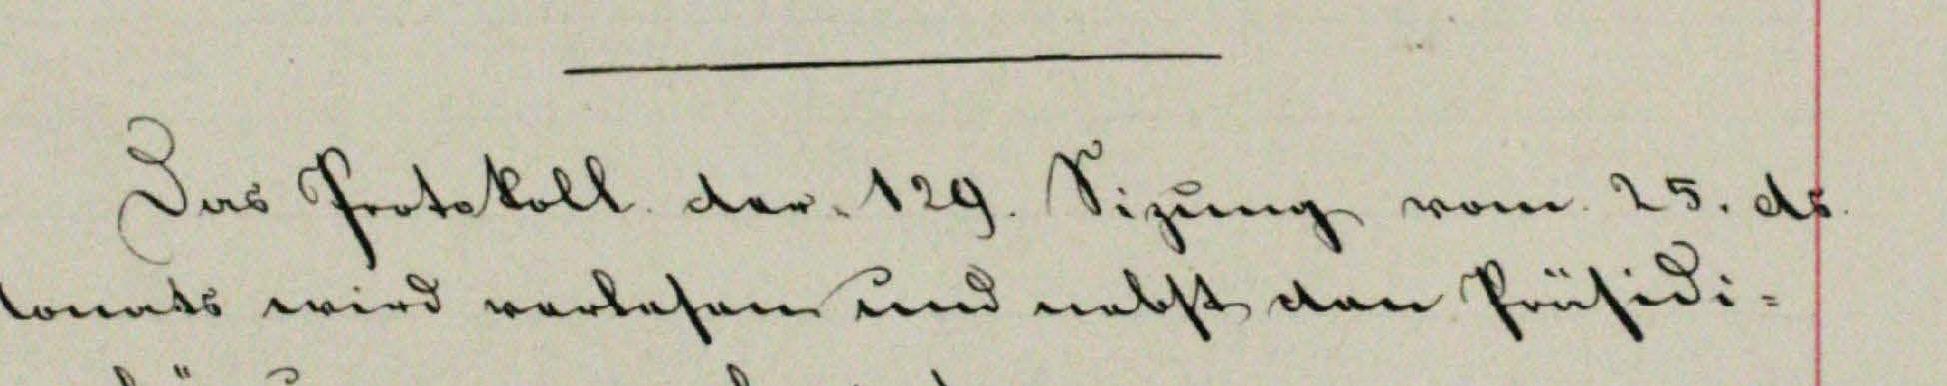 Das Protokoll der 129. Sizung vom 25. ds.
onats wird verlesen und nebst den Präsidi=